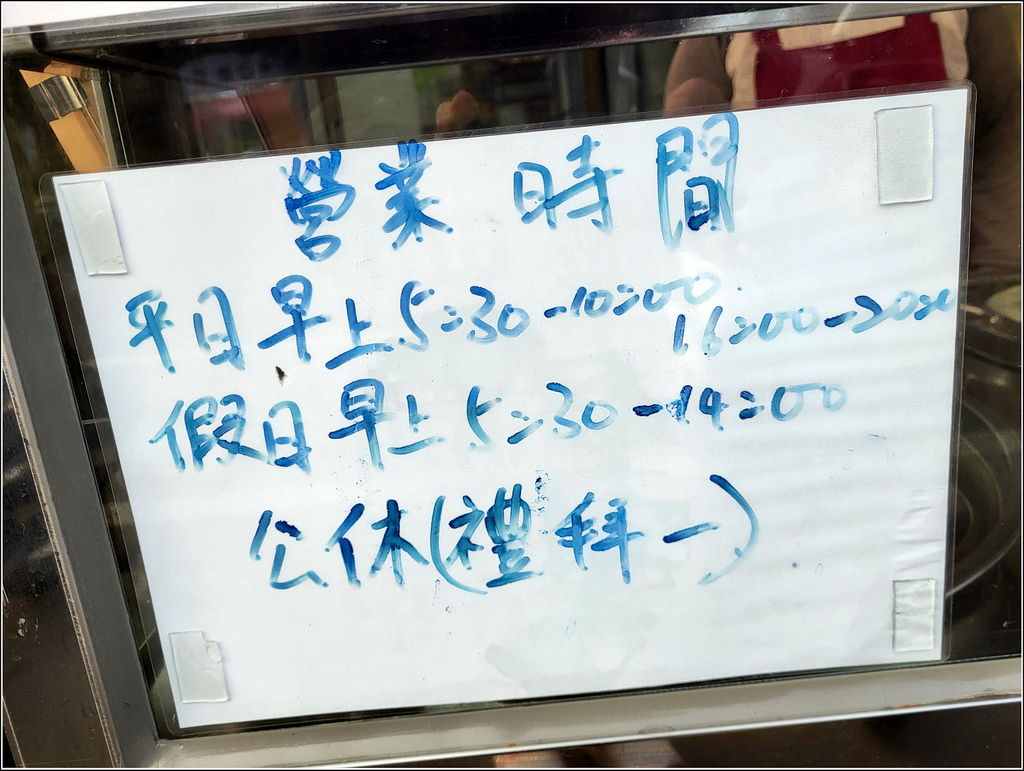 營業時間
平日早上5:30-10:00 16:00-20:0
假日早上5:30-14:00
公休(禮拜一)